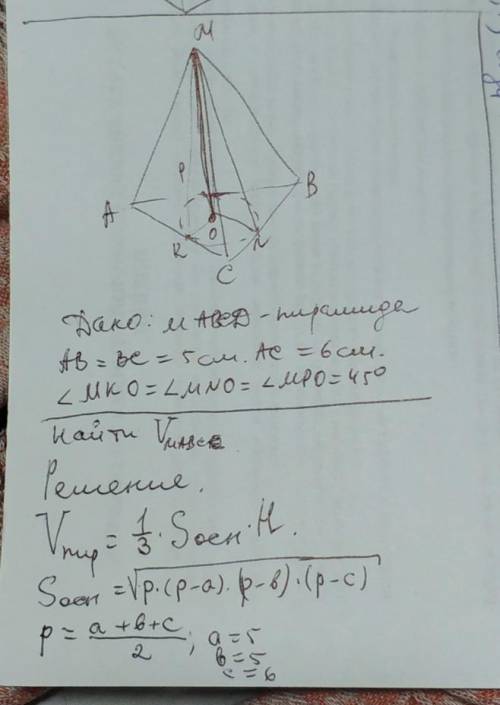 M
P
B
A
O
K
N
C
Дано: MABCD - пирамида
AB = BC = 5 см. AC = 6 см.
∠MKO = ∠MNO = ∠MPO = 45°
Найти V
Решение.
Vпир = 1/3 · Sосн · H.
Sосн = √p·(p-a)·(p-b)·(p-c)
p = a+b+c/2; a = 5
b = 5
c = 6